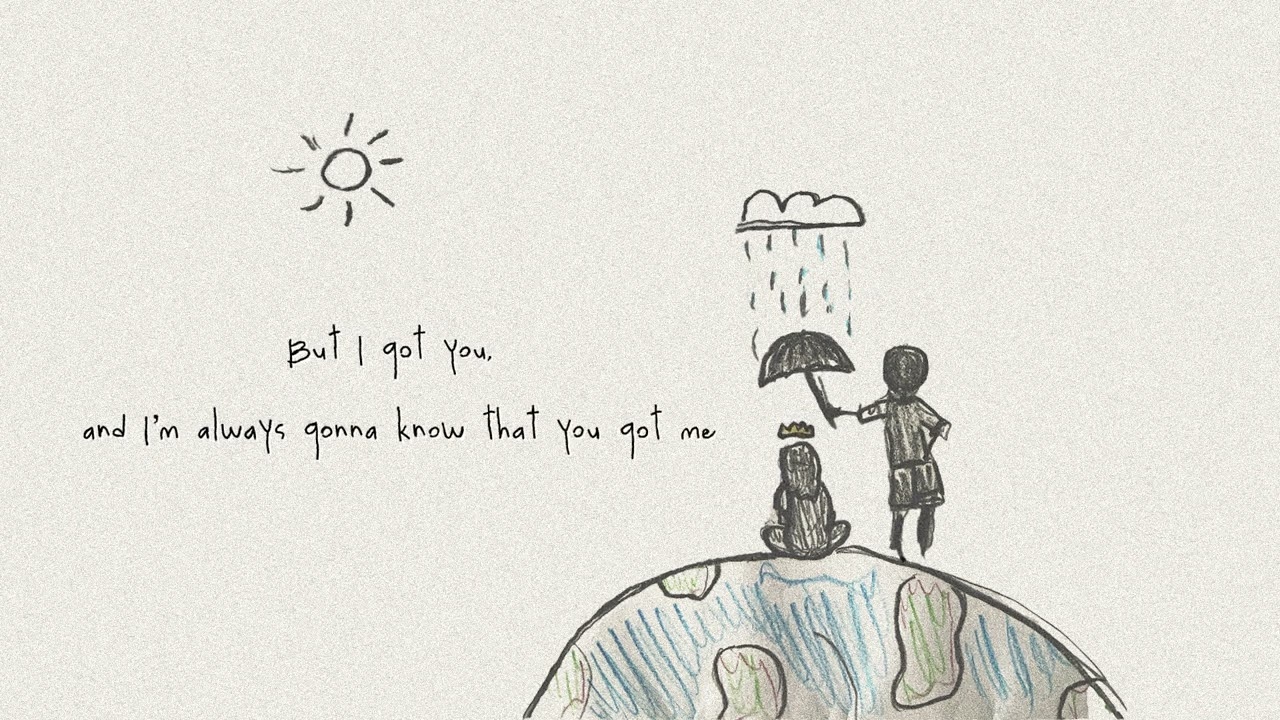 But I got you,
and I'm always gonna know that you got me